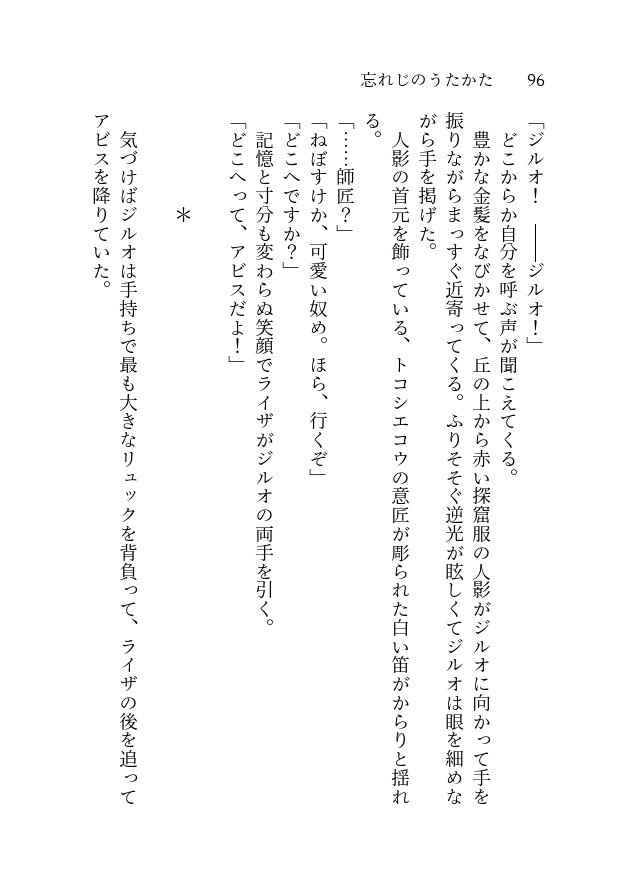 忘れじのうたかた 96
「ジルオ！　――ジルオ！」
どこからか自分を呼ぶ声が聞こえてくる。
豊かな金髪をなびかせて、丘の上から赤い探窟服の人影がジルオに向かって手を
振りながらまっすぐ近寄ってくる。ふりそそぐ逆光が眩しくてジルオは眼を細めな
がら手を掲げた。
人影の首元を飾っている、トコシエコウの意匠が彫られた白い笛がからりと揺れ
る。
「……師匠？」
「ねぼすけか、可愛い奴め。ほら、行くぞ」
「どこへですか？」
記憶と寸分も変わらぬ笑顔でライザがジルオの両手を引く。
「どこへって、アビスだよ！」
＊
気づけばジルオは手持ちで最も大きなリュックを背負って、ライザの後を追って
アビスを降りていた。